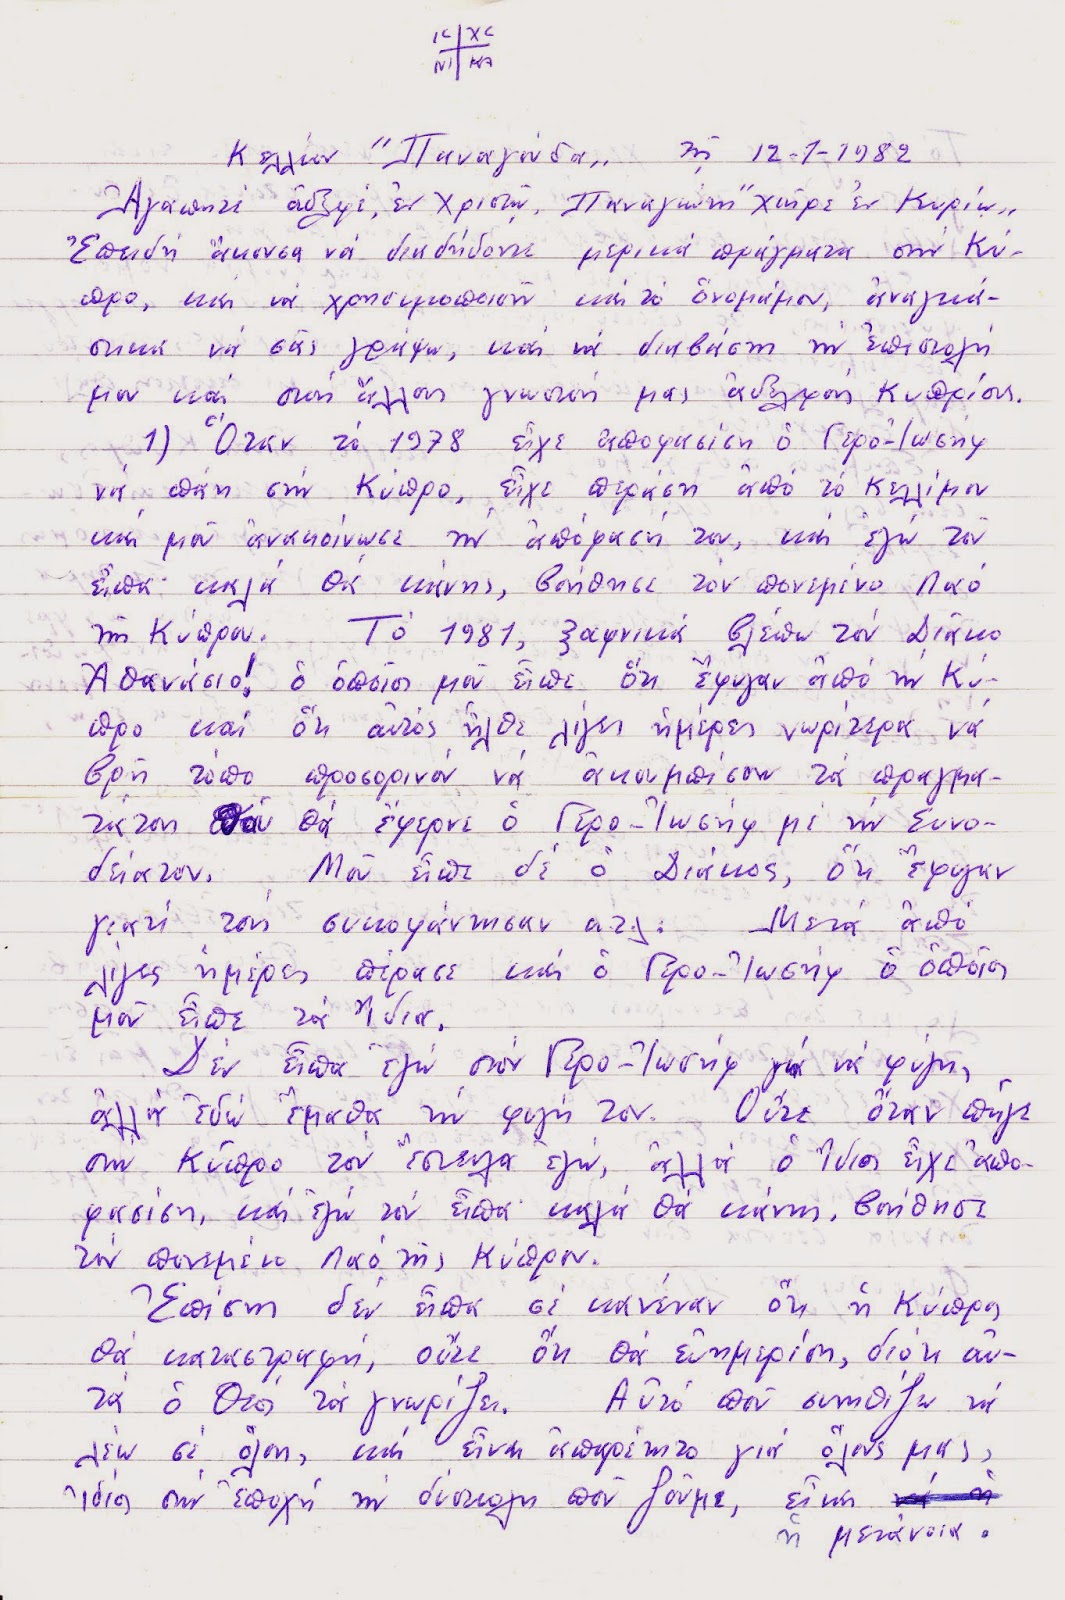 ΙC ΧC
ΝΙ ΚΑ
Κελλίον "Παναγούδα,, τῇ 12-1-1982
Ἀγαπητέ ἀδελφέ, ἐν Χριστῷ, Παναγιώτη "χαῖρε ἐν Κυρίῳ,,
Ἐπειδή ἄκουσα νά διαδίδονται μερικά πράγματα στήν Κύ-
προ, καί νά χρησιμοποιοῦν καί τό ὄνομάμου, ἀναγκά-
στικα νά σᾶς γράψω, καί νά διαβάσης τήν ἐπιστολή
μου καί στούς ἄλλους γνωστούς μας ἀδελφούς Κυπρίους.
1) Ὅταν τό 1978 εἶχε ἀποφασίση ὁ Γερο-Ἰωσήφ
νά πάη στήν Κύπρο, εἶχε περάση ἀπό τό Κελλίμου
καί μοῦ ἀνακοίνωσε τήν ἀπόφασή του, καί ἐγώ τοῦ
εἶπα· καλά θά κάνης, βοήθησε τόν πονεμένο Λαό
τῆς Κύπρου. Τό 1981, ξαφνικά βλέπω τόν Διάκο
Ἀθανάσιο! ὁ ὁποῖος μοῦ εἶπε ὅτι ἔφυγαν ἀπό τήν Κύ-
προ καί ὅτι αὐτός ἦλθε λίγες ἡμέρες νωρίτερα νά
βρῆ τόπο προσορινόν νά ἀκουμπίσουν τά πραγμα-
τάτου πού θά ἔφερνε ὁ Γερο-Ἰωσήφ μέ τήν Συνο-
δείατου. Μοῦ εἶπε δέ ὁ Διάκος, ὅτι ἔφυγαν
γιατί τούς συκοφάντησαν κ.τ.λ. Μετά ἀπό
λίγες ἡμέρες πέρασε καί ὁ Γερο-Ἰωσήφ ὁ ὁποῖος
μοῦ εἶπε τά ἴδια.
Δέν εἶπα ἐγώ στόν Γερο-Ἰωσήφ γιά νά φύγη,
ἀλλά ἐδῶ ἔμαθα τήν φυγή του. Οὔτε ὅταν πῆγε
στήν Κύπρο τόν ἔστειλα ἐγώ, ἀλλά ὁ ἴδιος εἶχε ἀπο-
φασίση, καί ἐγώ τόν εἶπα καλά θά κάνης, βοήθησε
τόν πονεμένο Λαό τῆς Κύπρου.
Ἐπίσης δέν εἶπα σέ κανέναν ὅτι ἡ Κύπρος
θά καταστραφῆ, οὔτε ὅτι θά εὐημερίση, διότι αὐ-
τά ὁ Θεός τά γνωρίζει. Αὐτό πού συνηθίζω νά
λέω σέ ὅλους, καί εἶναι ἀπαρέτητο γιά ὅλους μας,
ἰδίως στήν ἐποχή τήν δύσκολη πού ζοῦμε, εἶναι
ἡ μετάνοια.